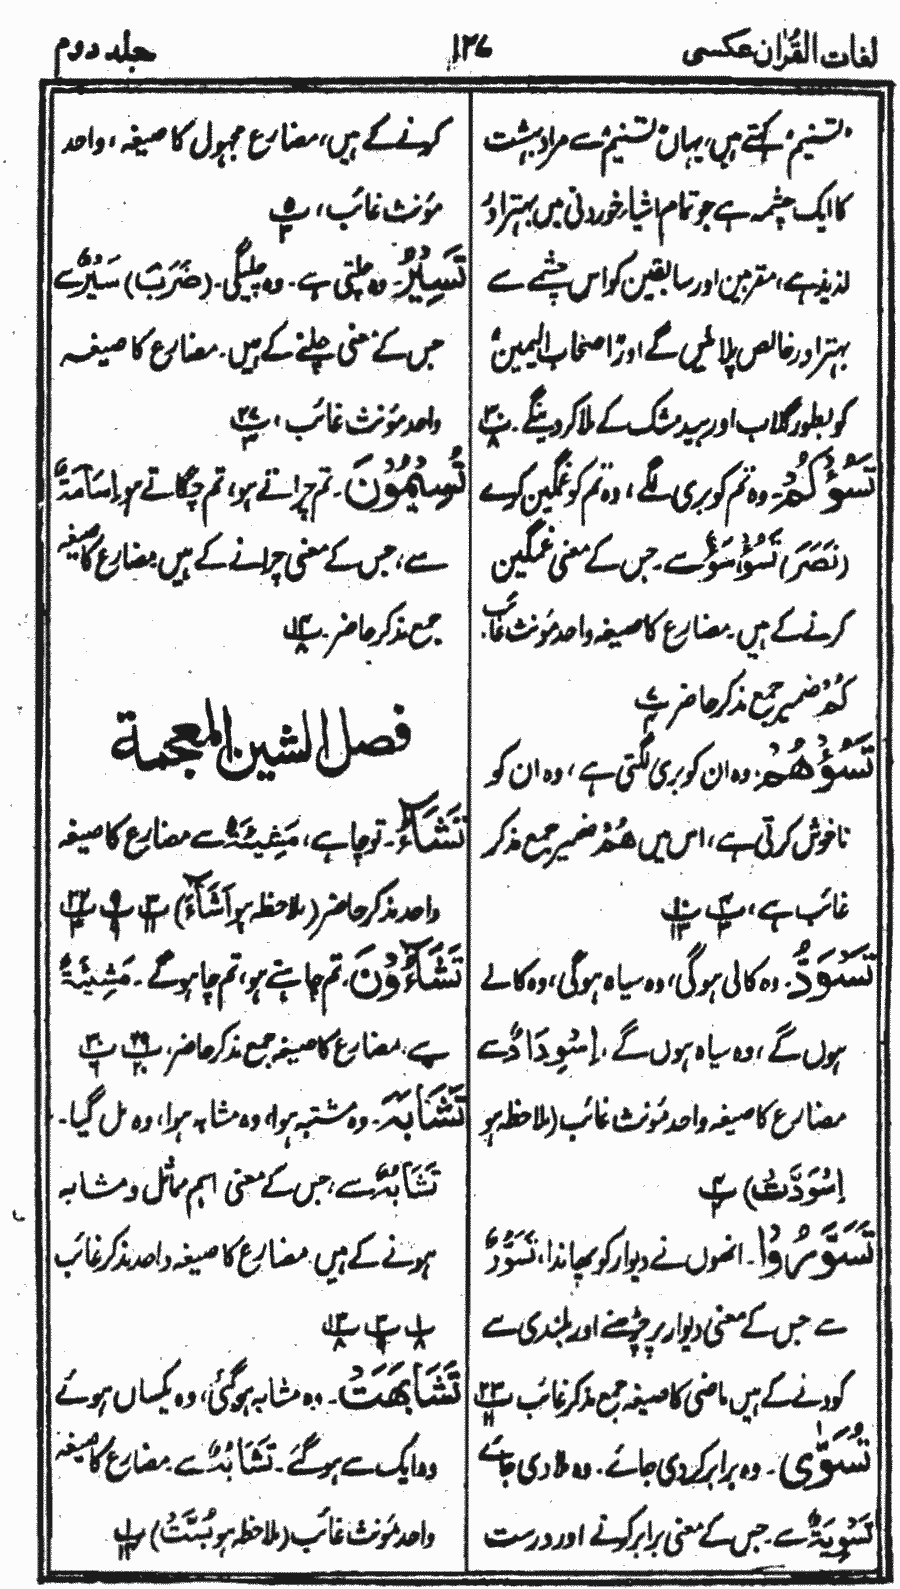 لغات القرآن عکسی
۱۲۷
جلد دوم
"تسنیم" کہتے ہیں، یہاں "تسنیم" سے مراد بہشت
کا ایک چشمہ ہے جو تمام اشیاء خوردنی میں بہتر اور
لذیذ ہے، مقربین اور سابقین کو اس چشمے سے
بہتر اور خالص پلائیں گے اور "اصحاب الیمین"
کو بطور گلاب اور بید مشک کے ملا کر دینگے۔ پ۳۰ ۸
تَسُؤْكُمْ۔ وہ تم کو بری لگے، وہ تم کو غمگین کرے
(نَصَرَ) تَسُوْءُ، سَوْءٌ سے۔ جس کے معنی غمگین
کرنے کے ہیں۔ مضارع کا صیغہ واحد مؤنث غائب۔
كُمْ ضمیر جمع مذکر حاضر پ۷
تَسُؤْهُمْ۔ وہ ان کو بری لگتی ہے، وہ ان کو
ناخوش کرتی ہے، اس میں هُمْ ضمیر جمع مذکر
غائب ہے، پ۴ ۳ پ۱۰ ۱۳
تَسْوَدُّ۔ وہ کالی ہوگی، وہ سیاہ ہوگی، وہ کالے
ہوں گے، وہ سیاہ ہوں گے، اِسْوِدَادٌ سے
مضارع کا صیغہ واحد مؤنث غائب (ملاحظہ ہو
اِسْوَدَّتْ) پ۴ ۲
تَسَوَّرُوْا۔ انھوں نے دیوار کو پھاندا، تَسَوُّرٌ
سے جس کے معنی دیوار پر چڑھنے اور بلندی سے
کودنے کے ہیں ماضی کا صیغہ جمع مذکر غائب پ۲۳ ۱۱
تُسَوّٰى۔ وہ برابر کردی جائے۔ وہ ملا دی جائے
تَسْوِيَةٌ سے۔ جس کے معنی برابر کرنے اور درست
کرنے کے ہیں، مضارع مجہول کا صیغہ، واحد
مؤنث غائب، پ۵ ۳
تَسِيْرُ۔ وہ چلتی ہے۔ وہ چلیگی۔ (ضَرَبَ) سَيْرٌ سے
جس کے معنی چلنے کے ہیں۔ مضارع کا صیغہ
واحد مؤنث غائب، پ۲۷ ۳
تُسِيْمُوْنَ۔ تم چراتے ہو، تم چگاتے ہو اِسَامَةٌ
سے، جس کے معنی چرانے کے ہیں مضارع کا صیغہ
جمع مذکر حاضر۔ پ۱۴ ۸
فصل الشین المعجمة
تَشَاءُ۔ تو چاہے، مَشِيْئَةٌ سے مضارع کا صیغہ
واحد مذکر حاضر (ملاحظہ ہو اَشَاءُ) پ۳ ۱۱ پ۹ ۹ پ۲۲ ۳
تَشَاءُوْنَ۔ تم چاہتے ہو، تم چاہو گے۔ مَشِيْئَةٌ
سے، مضارع کا صیغہ جمع مذکر حاضر، پ۲۹ ۲۰ پ۳۰ ۶
تَشَابَهَ۔ وہ مشتبہ ہوا، وہ مشابہ ہوا، وہ مل گیا۔
تَشَابُهٌ سے، جس کے معنی اہم مماثل و مشابہ
ہونے کے ہیں۔ مضارع کا صیغہ واحد مذکر غائب
پ۱ ۸ پ۳ ۹ پ۱۳ ۸
تَشَابَهَتْ۔ وہ مشابہ ہوگئی، وہ یکساں ہوئے
وہ ایک سے ہو گئے۔ تَشَابُهٌ سے۔ مضارع کا صیغہ
واحد مؤنث غائب (ملاحظہ ہو بُسَّتْ) پ۱ ۱۴